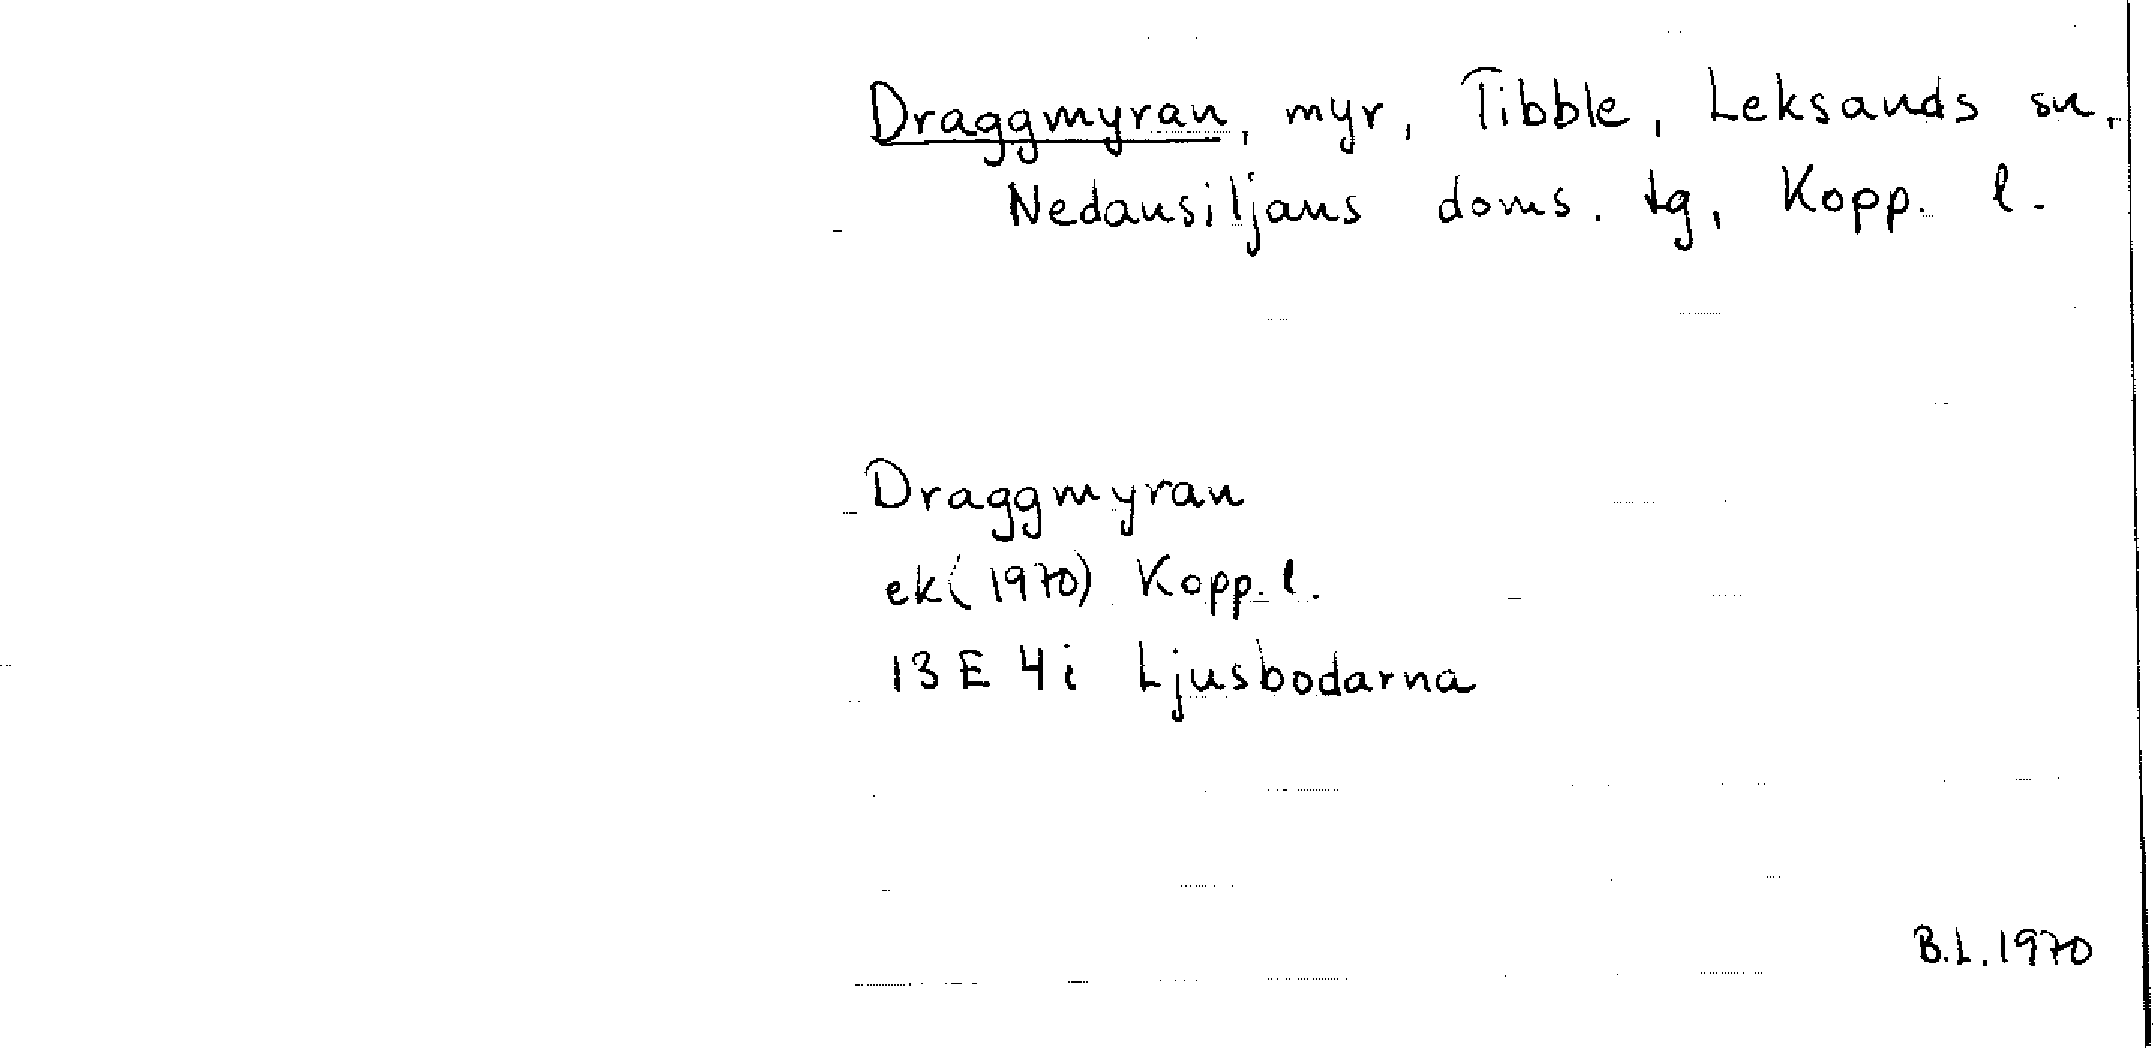 Draggmyran, myr, Tibble, Leksands sn,
Nedansiljans doms. tg, Kopp. l.
Draggmyran
ek (1970) Kopp. l.
13 E 4i Ljusbodarna
B.L. 1970